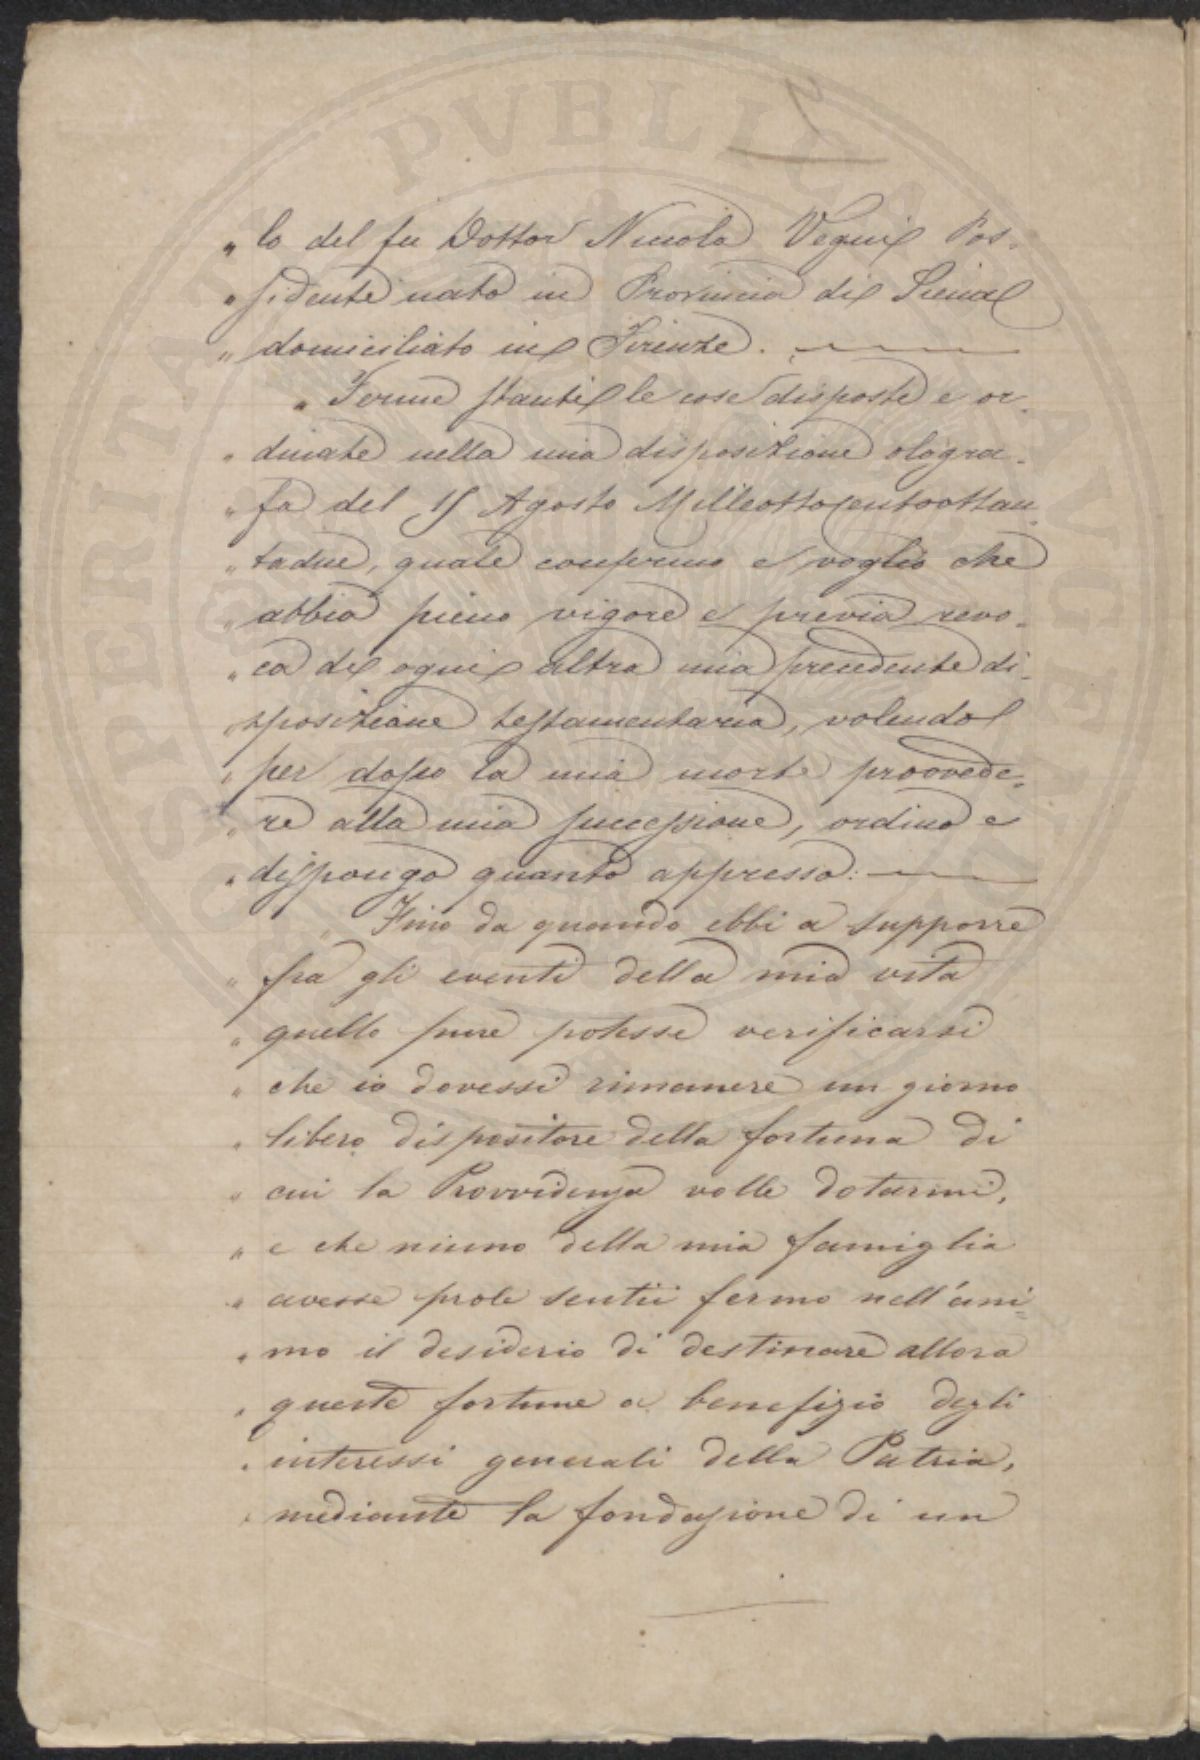 „ lo del fu Dottor Niccola Vegni Pos-
„ sidente nato in Provincia di Siena
„ domiciliato in Firenze.
„ Ferme stanti le cose disposte e or-
„ dinate nella mia disposizione ologra-
„ fa del 15 Agosto Milleottocentoottan-
„ tadue, quale confermo e voglio che
„ abbia pieno vigore e previa revo-
„ ca di ogni altra mia precedente di-
„ sposizione testamentaria, volendo
„ per dopo la mia morte provvede-
„ re alla mia successione, ordino e
„ dispongo quanto appresso:
„ Fino da quando ebbi a supporre
„ fra gli eventi della mia vita
„ quello pure potesse verificarsi
„ che io dovessi rimanere un giorno
„ libero dispositore della fortuna di
„ cui la Provvidenza volle dotarmi,
„ e che niuno della mia famiglia
„ avesse prole sentii fermo nell'ani=
„ mo il desiderio di destinare allora
„ queste fortune a benefizio degli
„ interessi generali della Patria,
„ mediante la fondazione di un